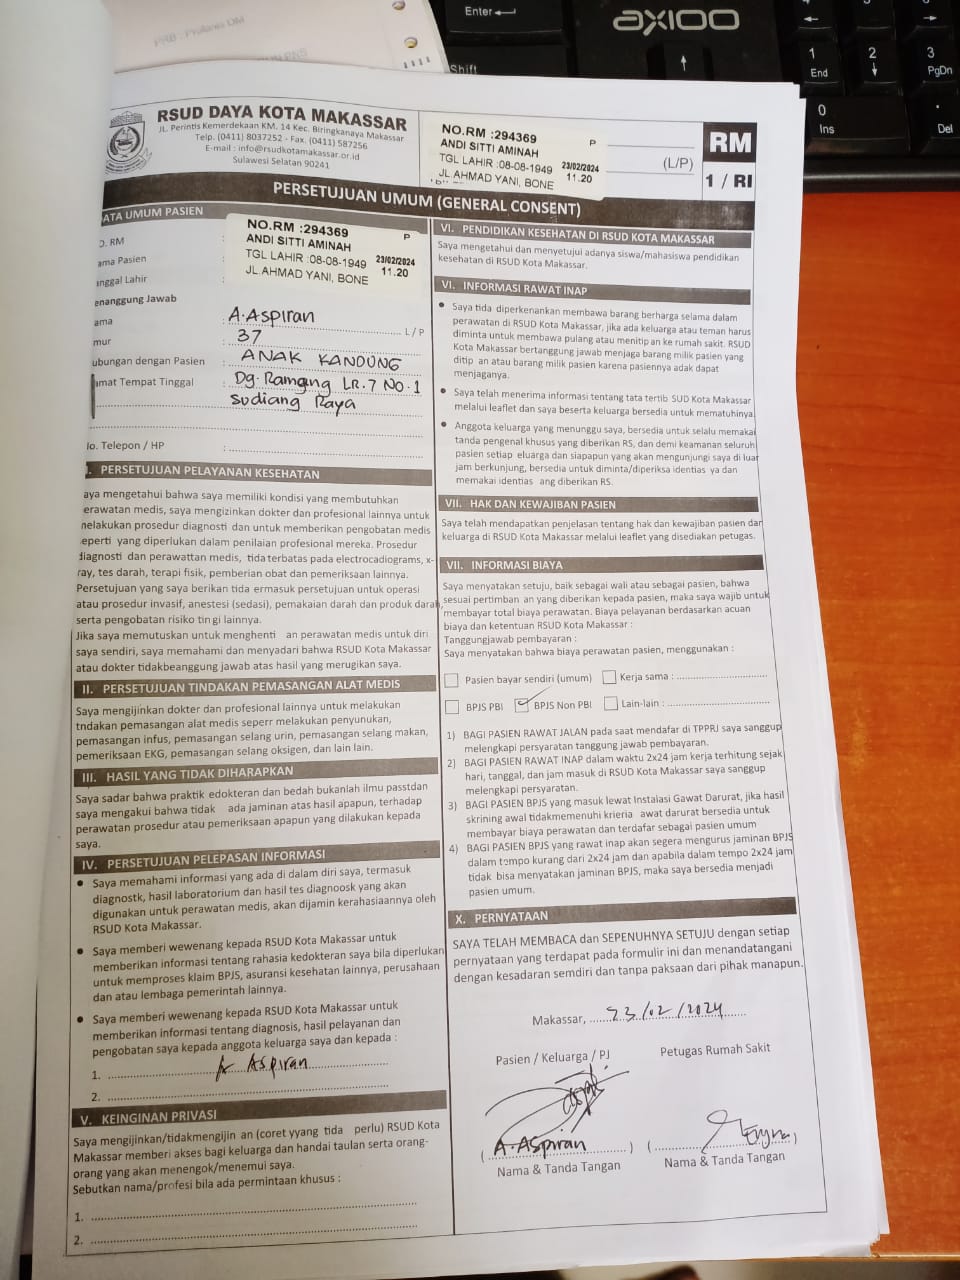 PRB : Prolanis DM
Enter
AXIOO
Shift
1
End
2
3
PgDn
0
Ins
.
Del
RSUD DAYA KOTA MAKASSAR
JL. Perintis Kemerdekaan KM. 14 Kec. Biringkanaya Makassar
Telp. (0411) 8037252 - Fax. (0411) 587256
E-mail : info@rsudkotamakassar.or.id
Sulawesi Selatan 90241
NO.RM :294369 P
ANDI SITTI AMINAH
TGL LAHIR :08-08-1949 23/02/2024
JL.AHMAD YANI, BONE 11.20
(L/P)
RM
1 / RI
PERSETUJUAN UMUM (GENERAL CONSENT)
ATA UMUM PASIEN
O. RM :
NO.RM :294369 P
ANDI SITTI AMINAH
TGL LAHIR :08-08-1949 23/02/2024
JL.AHMAD YANI, BONE 11.20
ama Pasien
nggal Lahir
enanggung Jawab
ama : A.Aspiran L / P
mur : 37
ubungan dengan Pasien : ANAK KANDUNG
amat Tempat Tinggal : Dg. Ramang LR.7 No.1
Sudiang Raya
lo. Telepon / HP :
I. PERSETUJUAN PELAYANAN KESEHATAN
aya mengetahui bahwa saya memiliki kondisi yang membutuhkan
erawatan medis, saya mengizinkan dokter dan profesional lainnya untuk
melakukan prosedur diagnosti dan untuk memberikan pengobatan medis
eperti yang diperlukan dalam penilaian profesional mereka. Prosedur
diagnosti dan perawattan medis, tida terbatas pada electrocadiograms, x-
ray, tes darah, terapi fisik, pemberian obat dan pemeriksaan lainnya.
Persetujuan yang saya berikan tida ermasuk persetujuan untuk operasi
atau prosedur invasif, anestesi (sedasi), pemakaian darah dan produk darah,
serta pengobatan risiko tin gi lainnya.
Jika saya memutuskan untuk menghenti an perawatan medis untuk diri
saya sendiri, saya memahami dan menyadari bahwa RSUD Kota Makassar
atau dokter tidakbeanggung jawab atas hasil yang merugikan saya.
II. PERSETUJUAN TINDAKAN PEMASANGAN ALAT MEDIS
Saya mengijinkan dokter dan profesional lainnya untuk melakukan
tndakan pemasangan alat medis seperr melakukan penyunukan,
pemasangan infus, pemasangan selang urin, pemasangan selang makan,
pemeriksaan EKG, pemasangan selang oksigen, dan lain lain.
III. HASIL YANG TIDAK DIHARAPKAN
Saya sadar bahwa praktik edokteran dan bedah bukanlah ilmu passtdan
saya mengakui bahwa tidak ada jaminan atas hasil apapun, terhadap
perawatan prosedur atau pemeriksaan apapun yang dilakukan kepada
saya.
IV. PERSETUJUAN PELEPASAN INFORMASI
● Saya memahami informasi yang ada di dalam diri saya, termasuk
diagnostk, hasil laboratorium dan hasil tes diagnoosk yang akan
digunakan untuk perawatan medis, akan dijamin kerahasiaannya oleh
RSUD Kota Makassar.
● Saya memberi wewenang kepada RSUD Kota Makassar untuk
memberikan informasi tentang rahasia kedokteran saya bila diperlukan
untuk memproses klaim BPJS, asuransi kesehatan lainnya, perusahaan
dan atau lembaga pemerintah lainnya.
● Saya memberi wewenang kepada RSUD Kota Makassar untuk
memberikan informasi tentang diagnosis, hasil pelayanan dan
pengobatan saya kepada anggota keluarga saya dan kepada :
1. A Aspiran
2.
V. KEINGINAN PRIVASI
Saya mengijinkan/tidakmengijin an (coret yyang tida perlu) RSUD Kota
Makassar memberi akses bagi keluarga dan handai taulan serta orang-
orang yang akan menengok/menemui saya.
Sebutkan nama/profesi bila ada permintaan khusus :
1.
2.
VI. PENDIDIKAN KESEHATAN DI RSUD KOTA MAKASSAR
Saya mengetahui dan menyetujui adanya siswa/mahasiswa pendidikan
kesehatan di RSUD Kota Makassar.
VI. INFORMASI RAWAT INAP
● Saya tida diperkenankan membawa barang berharga selama dalam
perawatan di RSUD Kota Makassar, jika ada keluarga atau teman harus
diminta untuk membawa pulang atau menitip an ke rumah sakit. RSUD
Kota Makassar bertanggung jawab menjaga barang milik pasien yang
ditip an atau barang milik pasien karena pasiennya adak dapat
menjaganya.
● Saya telah menerima informasi tentang tata tertib SUD Kota Makassar
melalui leaflet dan saya beserta keluarga bersedia untuk mematuhinya.
● Anggota keluarga yang menunggu saya, bersedia untuk selalu memakai
tanda pengenal khusus yang diberikan RS, dan demi keamanan seluruh
pasien setiap eluarga dan siapapun yang akan mengunjungi saya di luar
jam berkunjung, bersedia untuk diminta/diperiksa identias ya dan
memakai identias ang diberikan RS.
VII. HAK DAN KEWAJIBAN PASIEN
Saya telah mendapatkan penjelasan tentang hak dan kewajiban pasien dan
keluarga di RSUD Kota Makassar melalui leaflet yang disediakan petugas.
VII. INFORMASI BIAYA
Saya menyatakan setuju, baik sebagai wali atau sebagai pasien, bahwa
sesuai pertimban an yang diberikan kepada pasien, maka saya wajib untuk
membayar total biaya perawatan. Biaya pelayanan berdasarkan acuan
biaya dan ketentuan RSUD Kota Makassar :
Tanggungjawab pembayaran :
Saya menyatakan bahwa biaya perawatan pasien, menggunakan :
Pasien bayar sendiri (umum) Kerja sama :
BPJS PBI BPJS Non PBI Lain-lain :
1) BAGI PASIEN RAWAT JALAN pada saat mendafar di TPPRJ saya sanggup
melengkapi persyaratan tanggung jawab pembayaran.
2) BAGI PASIEN RAWAT INAP dalam waktu 2x24 jam kerja terhitung sejak
hari, tanggal, dan jam masuk di RSUD Kota Makassar saya sanggup
melengkapi persyaratan.
3) BAGI PASIEN BPJS yang masuk lewat Instalasi Gawat Darurat, jika hasil
skrining awal tidakmemenuhi krieria awat darurat bersedia untuk
membayar biaya perawatan dan terdafar sebagai pasien umum
4) BAGI PASIEN BPJS yang rawat inap akan segera mengurus jaminan BPJS
dalam tempo kurang dari 2x24 jam dan apabila dalam tempo 2x24 jam
tidak bisa menyatakan jaminan BPJS, maka saya bersedia menjadi
pasien umum.
X. PERNYATAAN
SAYA TELAH MEMBACA dan SEPENUHNYA SETUJU dengan setiap
pernyataan yang terdapat pada formulir ini dan menandatangani
dengan kesadaran semdiri dan tanpa paksaan dari pihak manapun.
Makassar, 23/02/2024
Pasien / Keluarga / PJ Petugas Rumah Sakit
( A.Aspiran ) ( )
Nama & Tanda Tangan Nama & Tanda Tangan